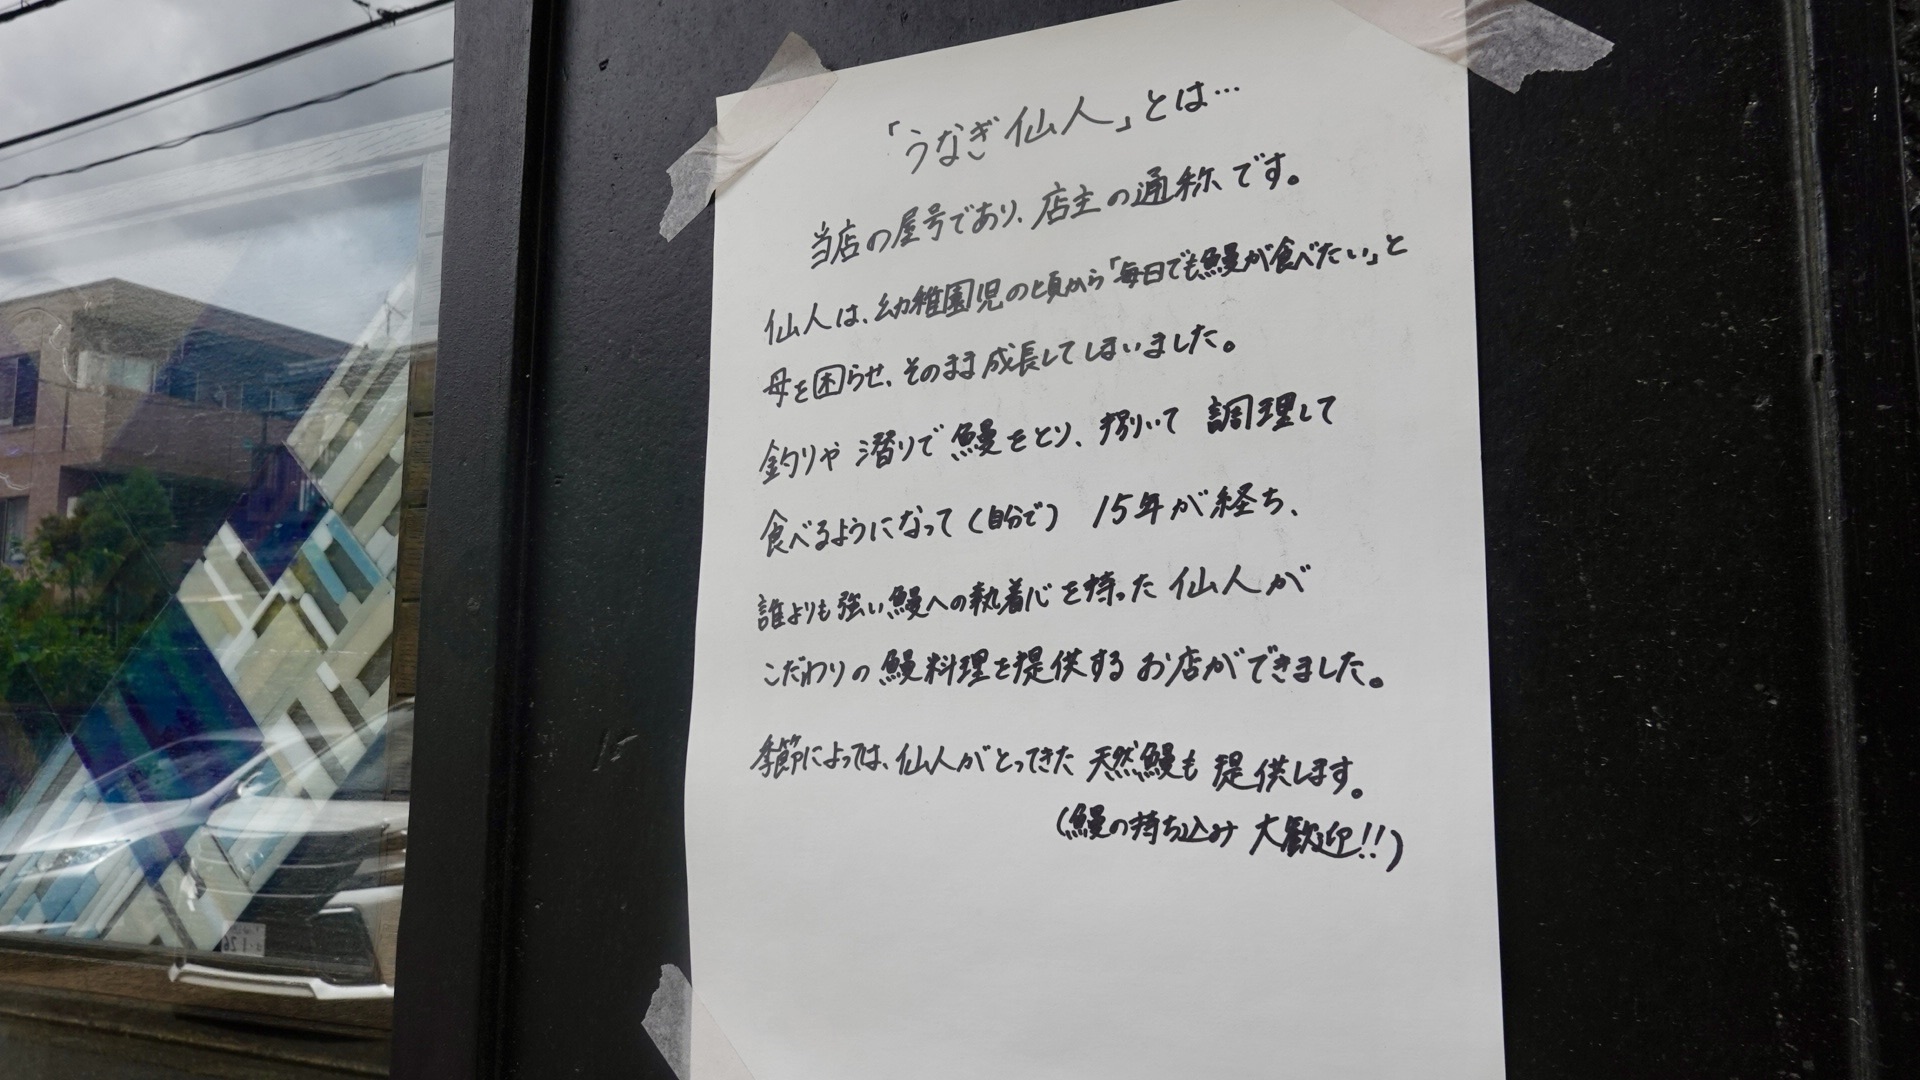 「うなぎ仙人」とは…
当店の屋号であり、店主の通称です。
仙人は、幼稚園児の頃から「毎日でも鰻が食べたい」と
母を困らせ、そのまま成長してしまいました。
釣りや潜りで鰻をとり、捌いて調理して
食べるようになって(自分で) 15年が経ち、
誰よりも強い鰻への執着心を持った仙人が
こだわりの鰻料理を提供するお店ができました。
季節によっては、仙人がとってきた天然鰻も提供します。
(鰻の持ち込み 大歓迎!!)